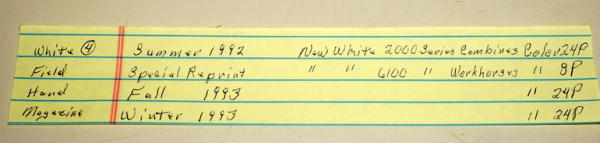 White ④ Summer 1992 New White 2000 Series Combines Color 24P
Field Special Reprint " " 6100 " Workhorses " 8P
Hand Fall 1993 " 24P
Magazine Winter 1993 " 24P